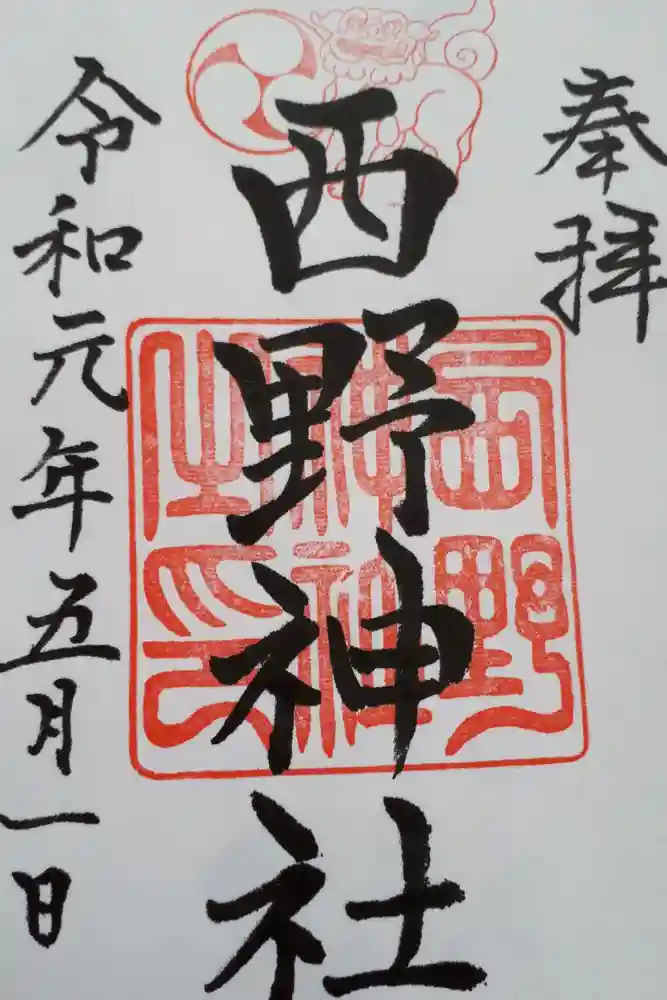 奉拝
西野神社
西野神社之印
令和元年五月一日